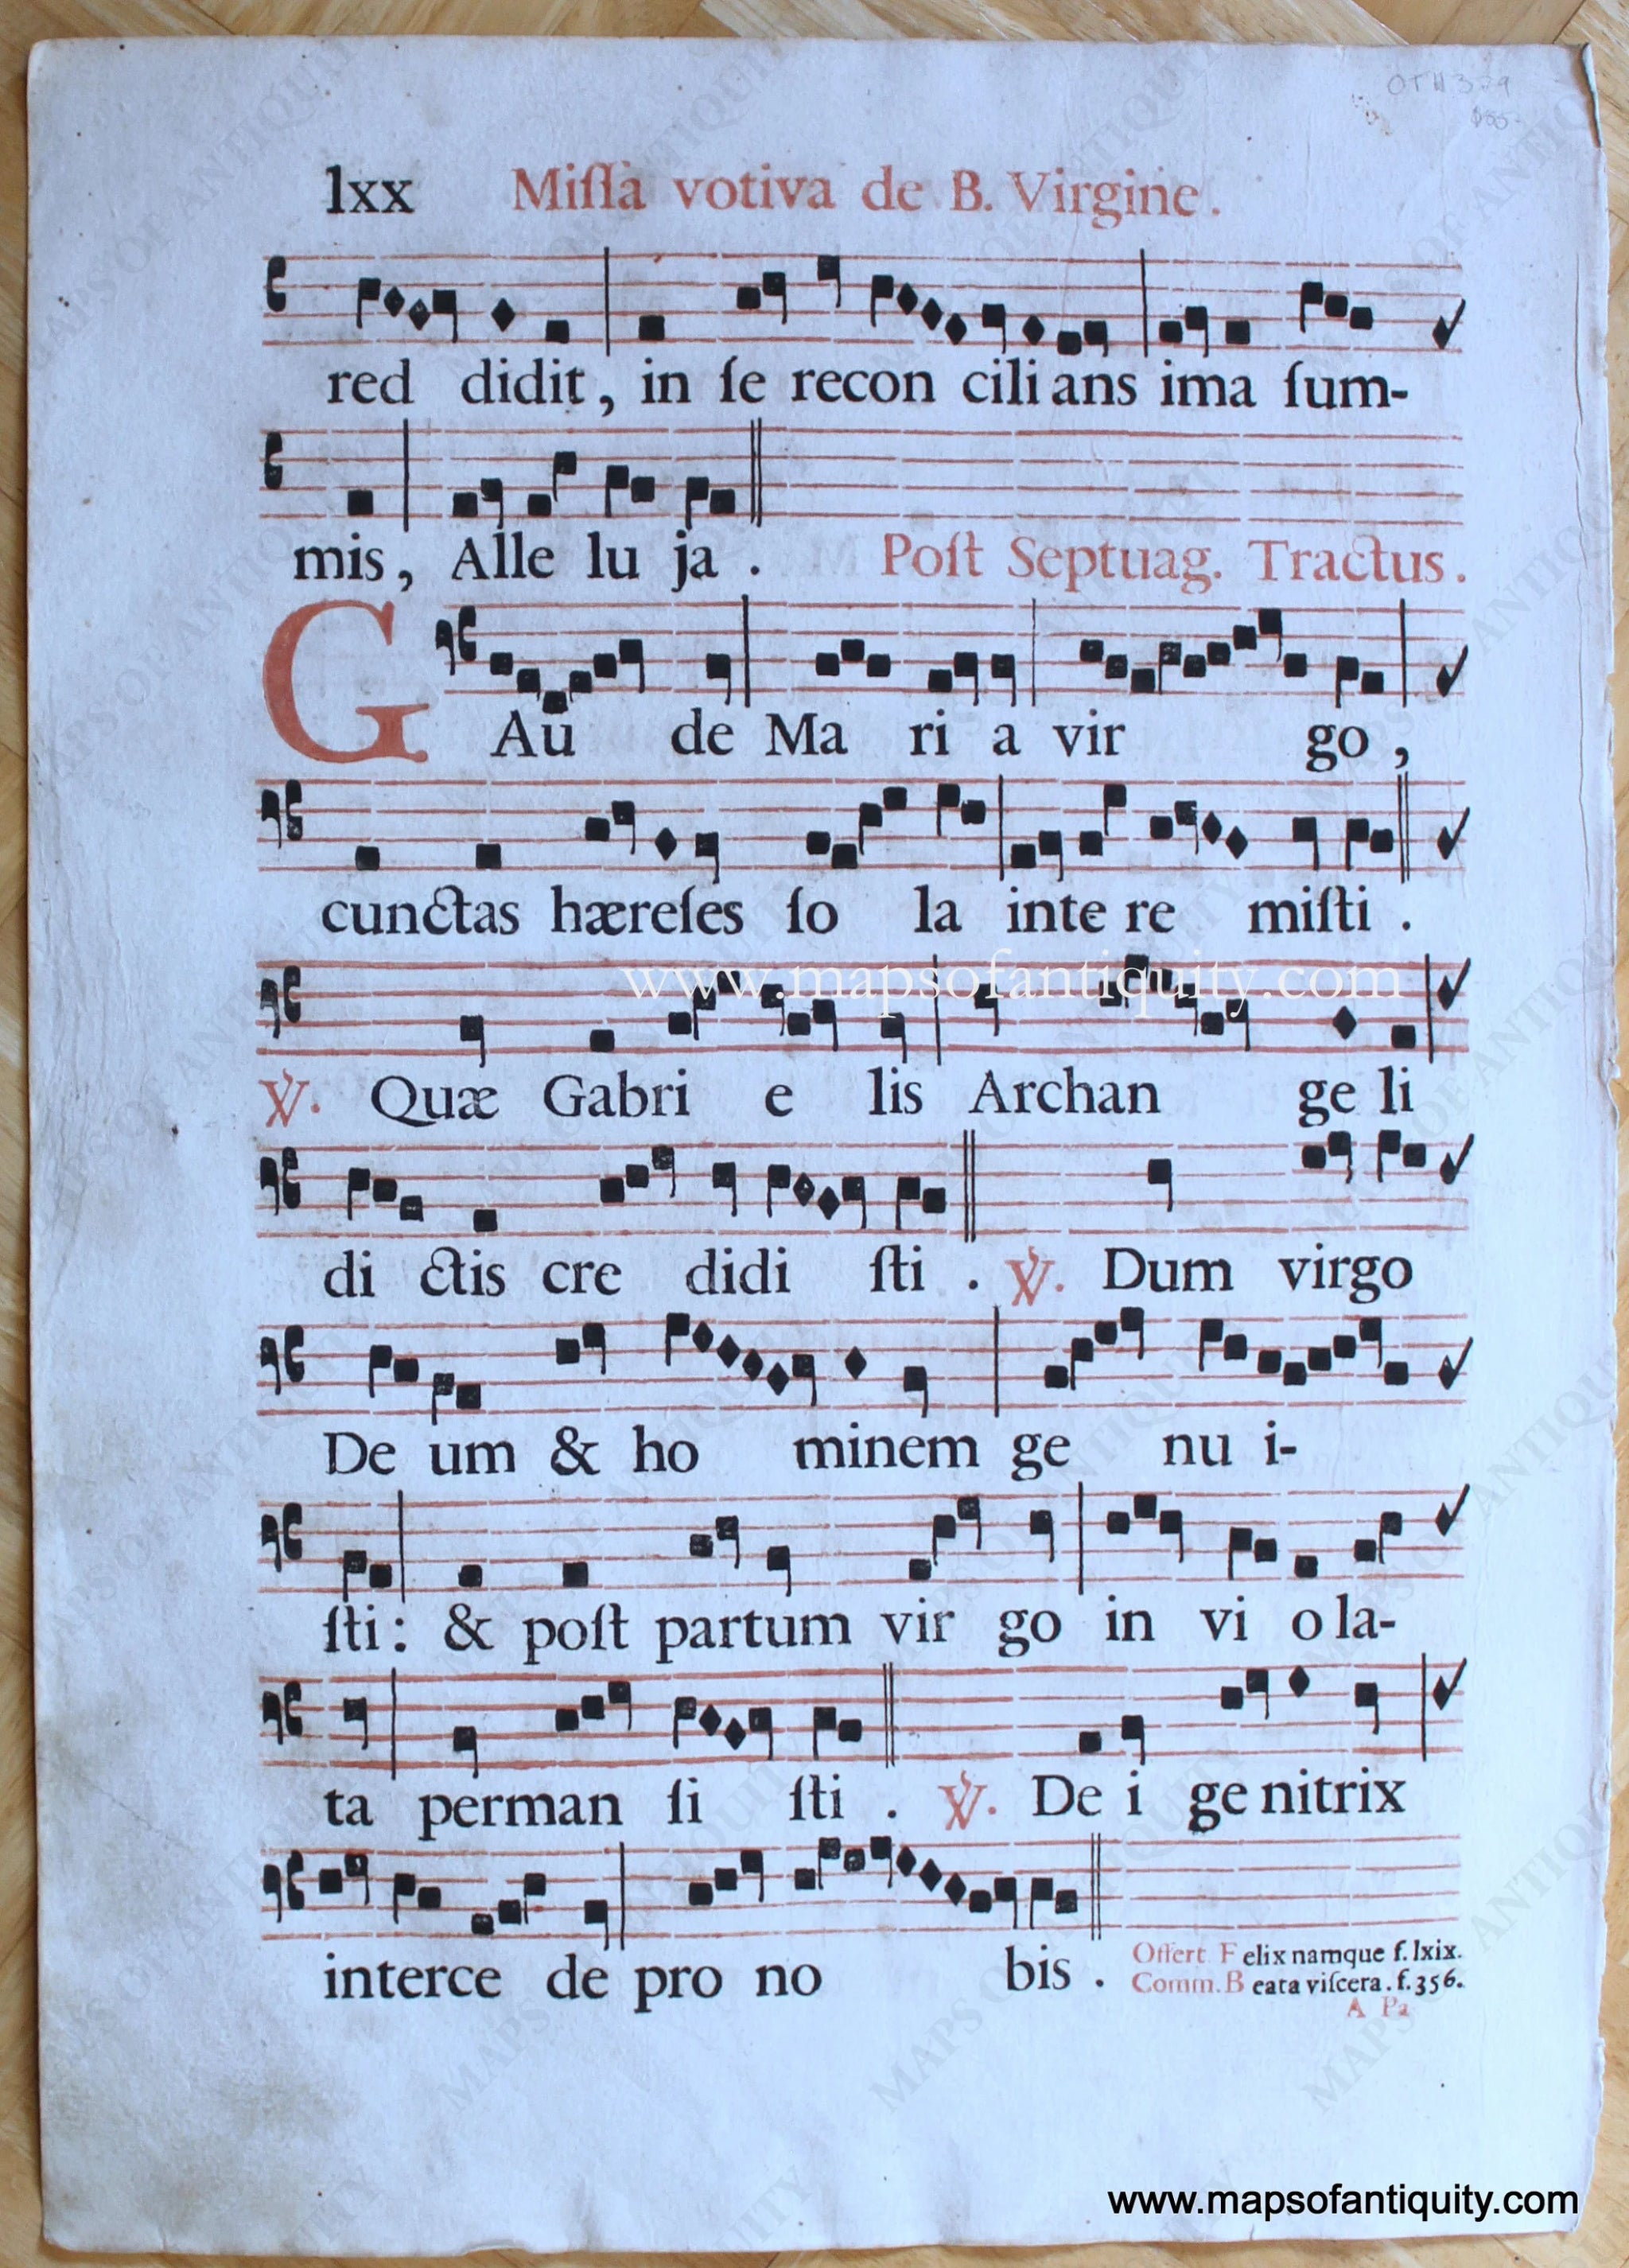 OTH 339
lxx Miſſa votiva de B. Virgine.
red didit, in ſe recon cili ans ima ſum-
mis, Alle lu ja. Poſt Septuag. Tractus.
GAu de Ma ri a vir go,
cunctas hæreſes ſo la inte re miſti.
www.mapsofantiquity.com
℣. Quæ Gabri e lis Archan ge li
di ctis cre didi ſti. ℣. Dum virgo
De um & ho minem ge nu i-
ſti: & poſt partum vir go in vi o la-
ta perman ſi ſti. ℣. De i ge nitrix
interce de pro no bis. Offert Felix namque f. lxix.
Comm. Beata viſcera. f. 356.
A Pa
www.mapsofantiquity.com